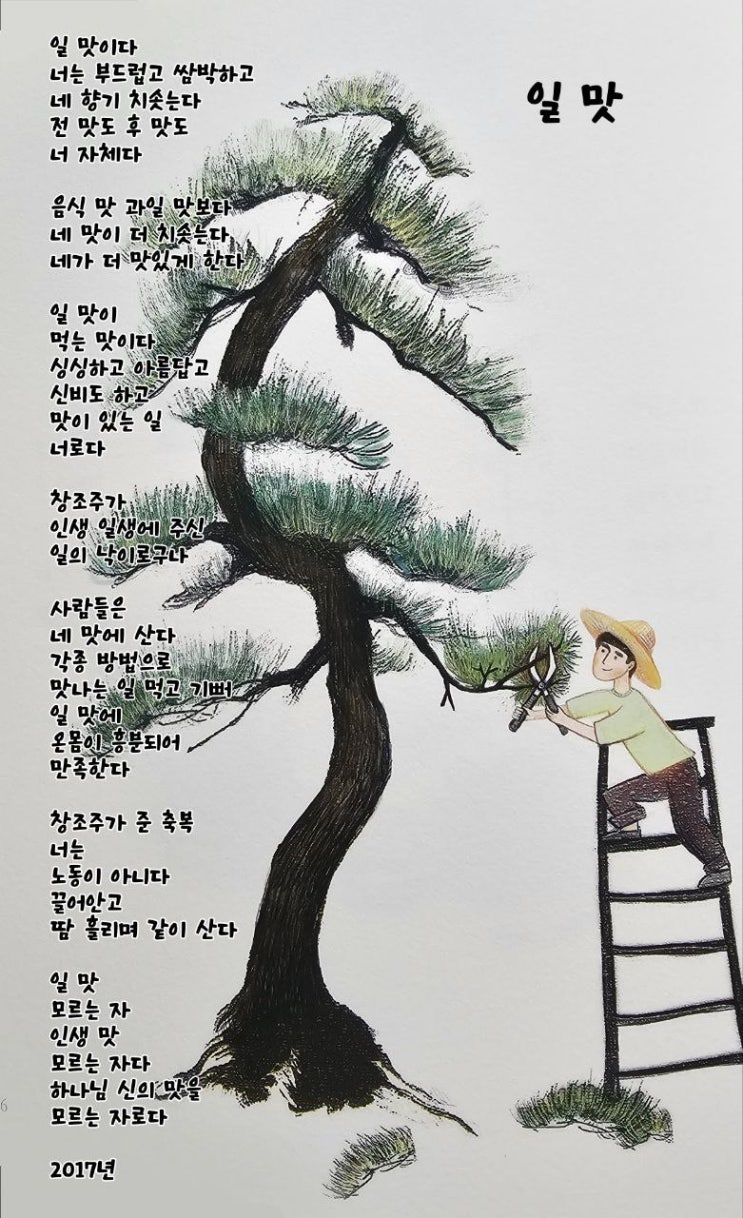 일 맛
일 맛이다
너는 부드럽고 쌈박하고
네 향기 치솟는다
전 맛도 후 맛도
너 자체다
음식 맛 과일 맛보다
네 맛이 더 치솟는다
네가 더 맛있게 한다
일 맛이
먹는 맛이다
싱싱하고 아름답고
신비도 하고
맛이 있는 일
너로다
창조주가
인생 일생에 주신
일의 낙이로구나
사람들은
네 맛에 산다
각종 방법으로
맛나는 일 먹고 기뻐
일 맛에
온몸이 흥분되어
만족한다
창조주가 준 축복
너는
노동이 아니다
끌어안고
땀 흘리며 같이 산다
일 맛
모르는 자
인생 맛
모르는 자다
하나님 신의 맛을
모르는 자로다
2017년
6